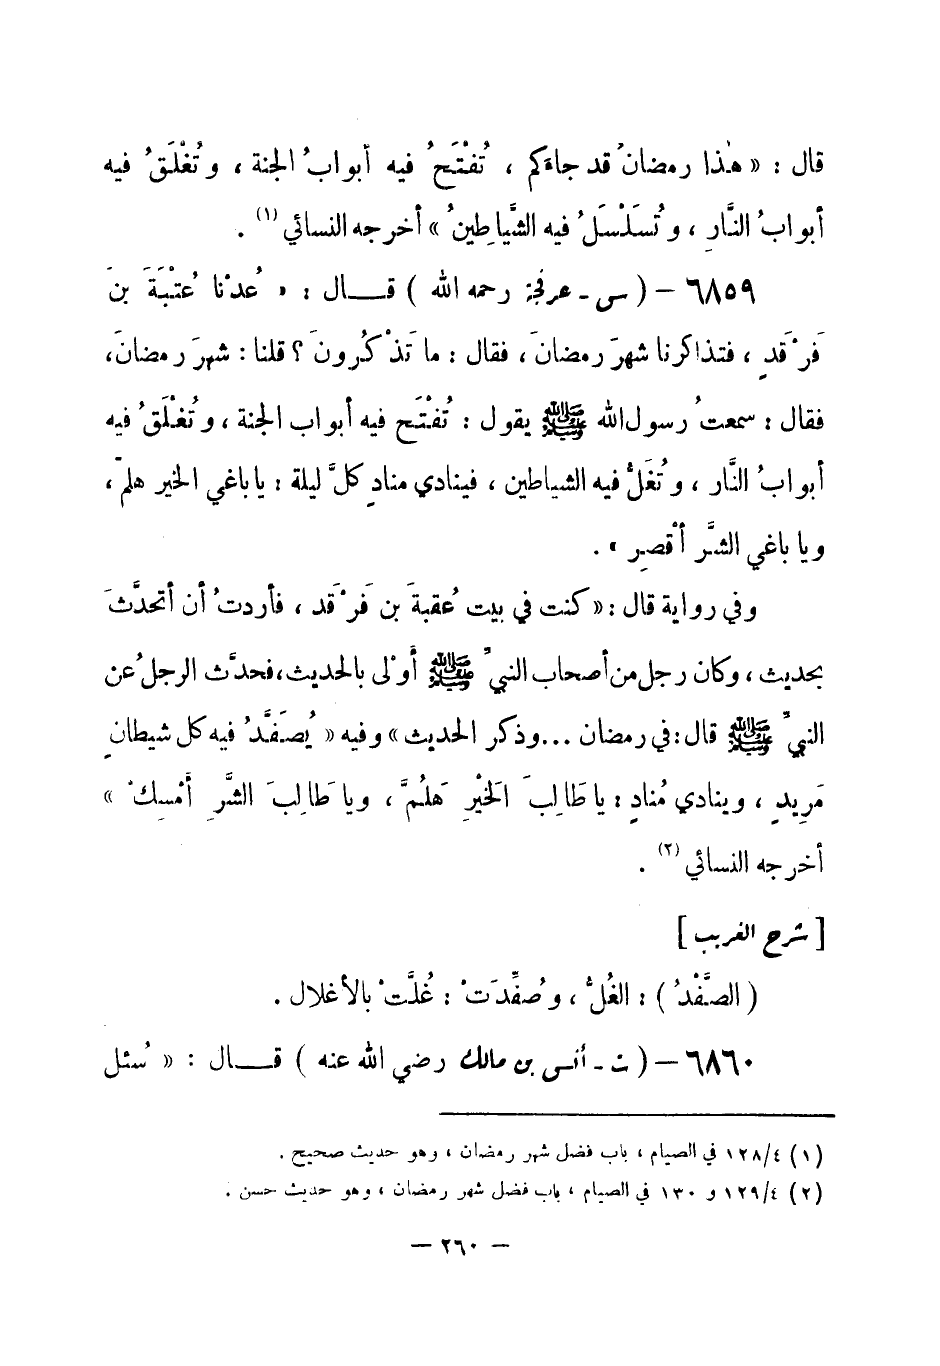 قال : « هٰذا رمضانُ قد جاءكم ، تُفْتَحُ فيه أبوابُ الجنة ، وتُغْلَقُ فيه
أبوابُ النَّارِ ، وتُسَلْسَلُ فيه الشَّياطينُ » أخرجه النسائي (١) .
٦٨٥٩ – ( س - عرفجة رحمه الله ) قــال : « عُدْنا عُتْبَةَ بنَ
فَرْقَدٍ ، فتذاكرنا شهرَ رمضانَ ، فقال : ما تَذْكُرونَ ؟ قلنا : شهرَ رمضانَ،
فقال : سمعتُ رسول الله ﷺ يقول : تُفْتَح فيه أبواب الجنة ، وتُغْلَقُ فيه
أبوابُ النَّار ، وتُغَلُّ فيه الشياطين ، فينادي منادٍ كلَّ ليلة : يا باغي الخير هلمّ ،
ويا باغي الشَّر أقْصِر » .
وفي رواية قال : « كنت في بيت عُقبةَ بن فَرْقَد ، فأردتُ أن أتحدَّثَ
بحديث ، وكان رجل من أصحاب النبيِّ ﷺ أَوْلى بالحديث، فحدَّث الرجلُ عن
النبيِّ ﷺ قال : في رمضان ... وذكر الحديث » وفيه « يُصَفَّدُ فيه كل شيطانٍ
مَرِيدٍ ، وينادي مُنادٍ : يا طَالِبَ الخَيْرِ هَلُمَّ ، ويا طَالِبَ الشَّرِ أَمْسِكْ »
أخرجه النسائي (٢) .
[ شرح الغريب ]
( الصَّفْدُ ) : الغُلُّ ، وصُفِّدَتْ : غُلَّتْ بالأغلال .
٦٨٦٠ – ( ت - أنس بن مالك رضي الله عنه ) قــال : « سُئل
(١) ٤/١٢٨ في الصيام ، باب فضل شهر رمضان ، وهو حديث صحيح .
(٢) ٤/١٢٩ و ١٣٠ في الصيام ، باب فضل شهر رمضان ، وهو حديث حسن .
– ٢٦٠ –